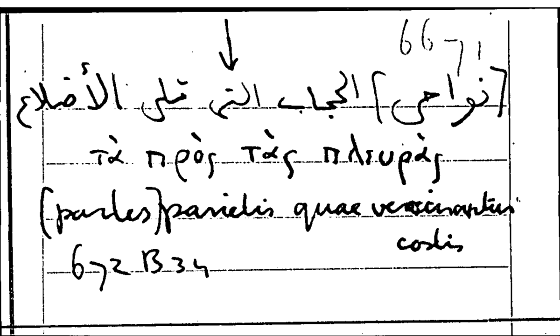 6671
[نواحى] الحجاب التى تلى الأضلاع
τὰ πρὸς τὰς πλευρὰς
(partes) parietis quae
costis
672 B 34